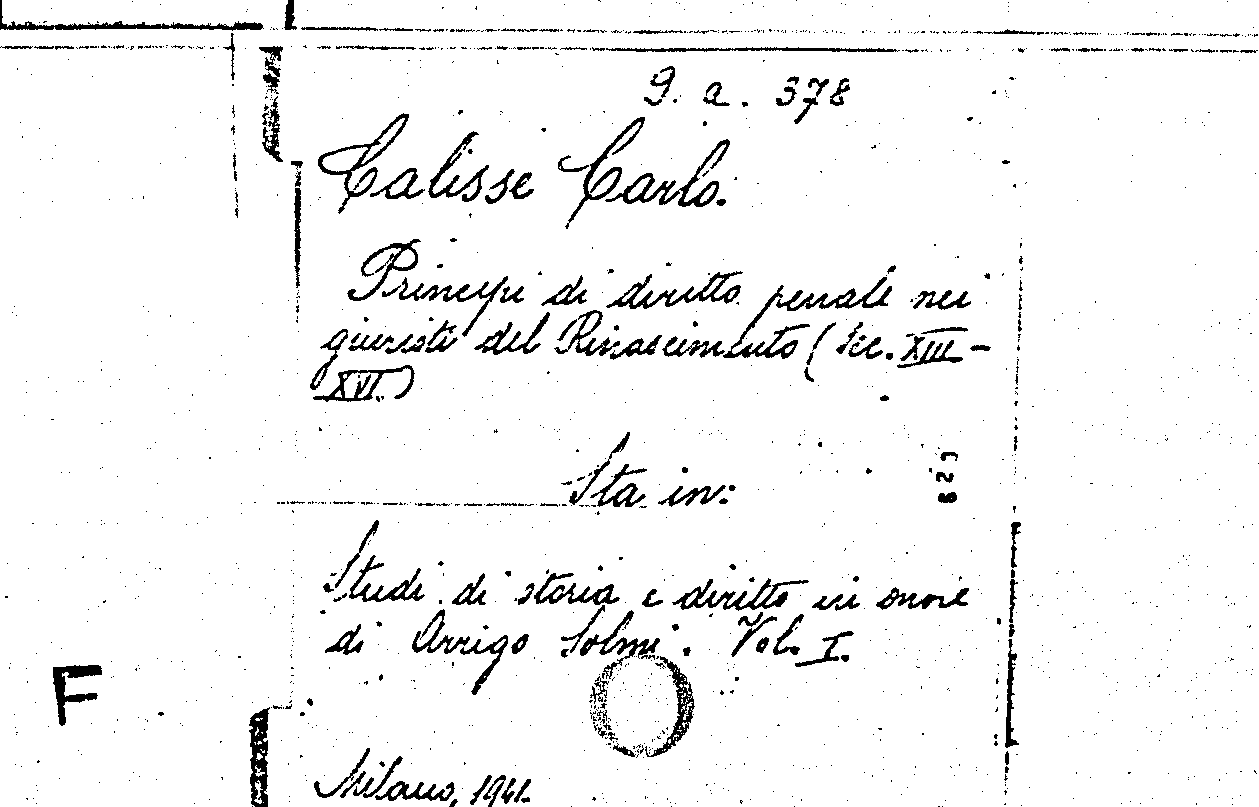 9. a. 378
Calisse Carlo.
Principi di diritto penale nei
giuristi del Rinascimento (Sec. XIII-
XVI.)
Sta in:
Studi di storia e diritto in onore
di Arrigo Solmi. Vol. I.
F
Milano, 1941.